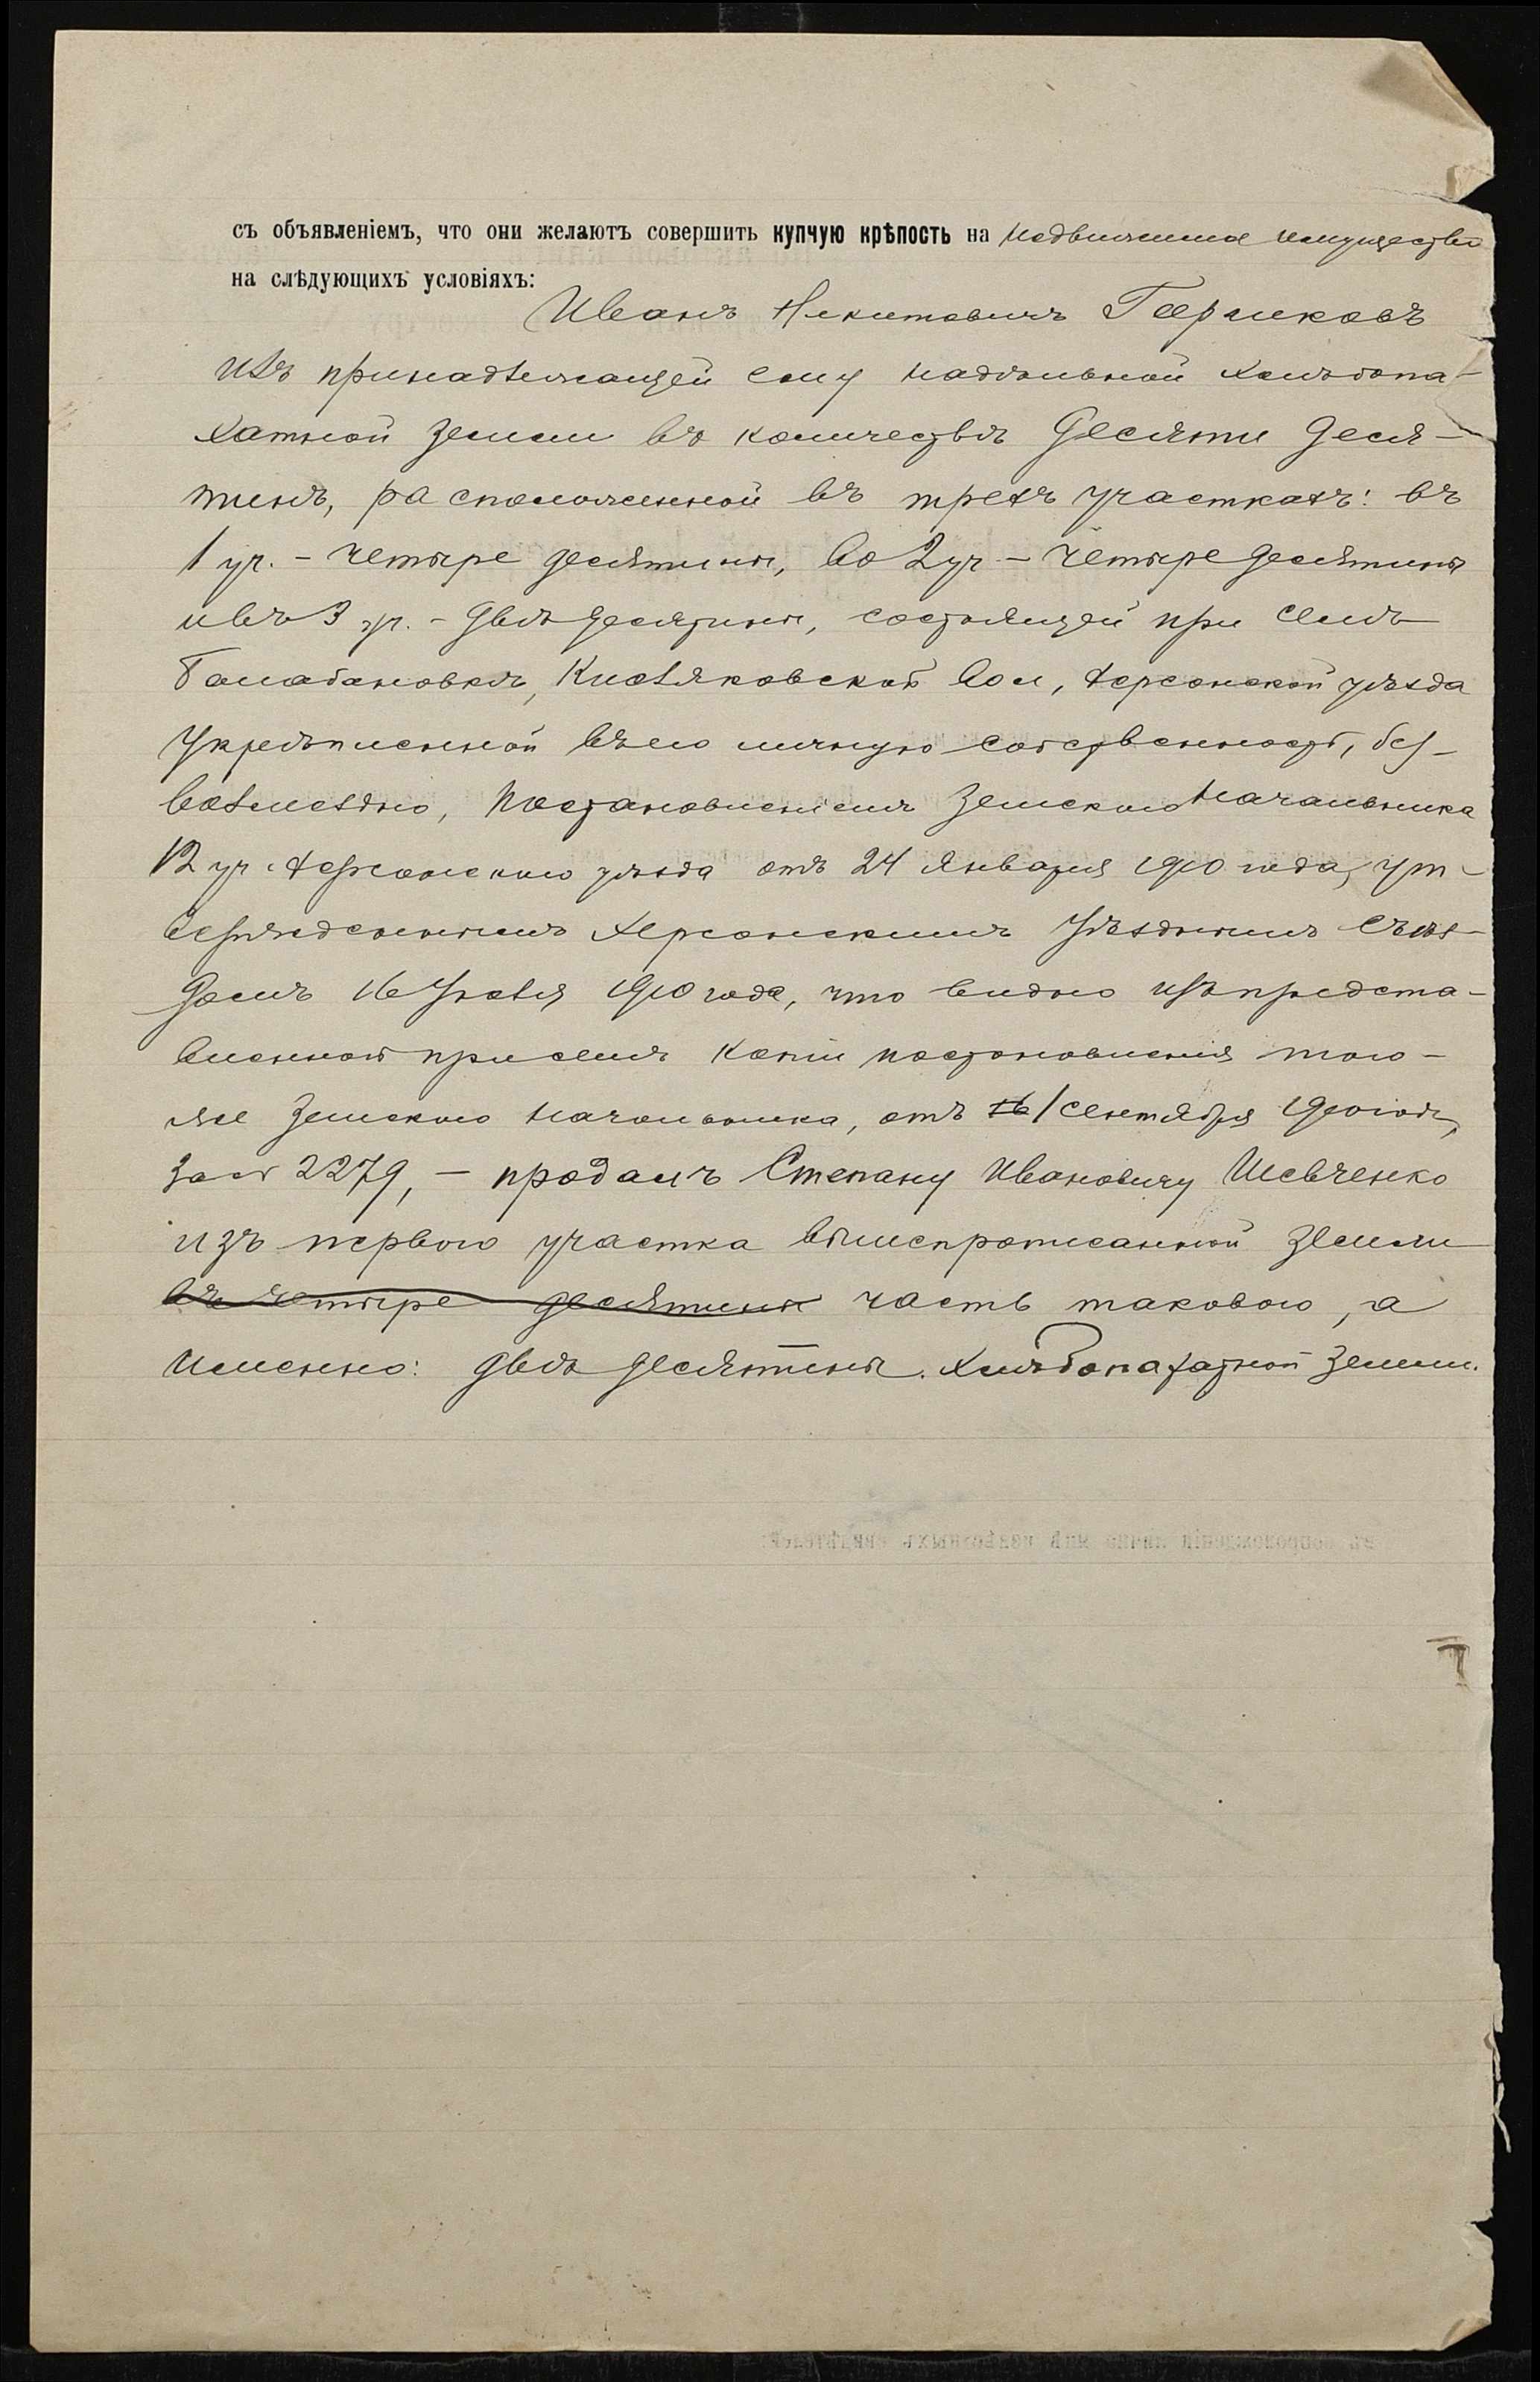 съ объявленіемъ, что они желаютъ совершить купчую крѣпость на недвижимое имущество
на слѣдующихъ условіяхъ:
Иванъ Никитовичъ
изъ принадлежащей ему надѣльной хлѣбопа-
хатной земли въ количествѣ десяти деся-
тинъ, расположенной въ трехъ участкахъ: въ
1 уч. - четыре десятины, во 2 уч - четыре десятины
и въ 3 уч. - двѣ десятины, состоящей при селѣ
Балабановкѣ, Кисляковской вол, Херсонской уѣзда
укрѣпленной въ его личную собственность, без-
возмездно, постановленіемъ Земскаго Начальника
12 уч Херсонскаго уѣзда отъ 24 января 1910 года, ут-
вержденнымъ Херсонскимъ Уѣзднымъ Съѣз-
домъ 16 1910 года, что видно изъ предста-
вленной при семъ копіи постановленія того-
же Земскаго Начальника, отъ 16/сентября 1910 года,
за № 2279, - продалъ Степану Ивановичу Шевченко
изъ перваго участка вышепрописанной земли
въ четыре десятины часть таковаго, а
именно: двѣ десятины. хлѣбопахатной земли.
въ сопровожденіи лично мнѣ извѣстныхъ свидѣтелей: